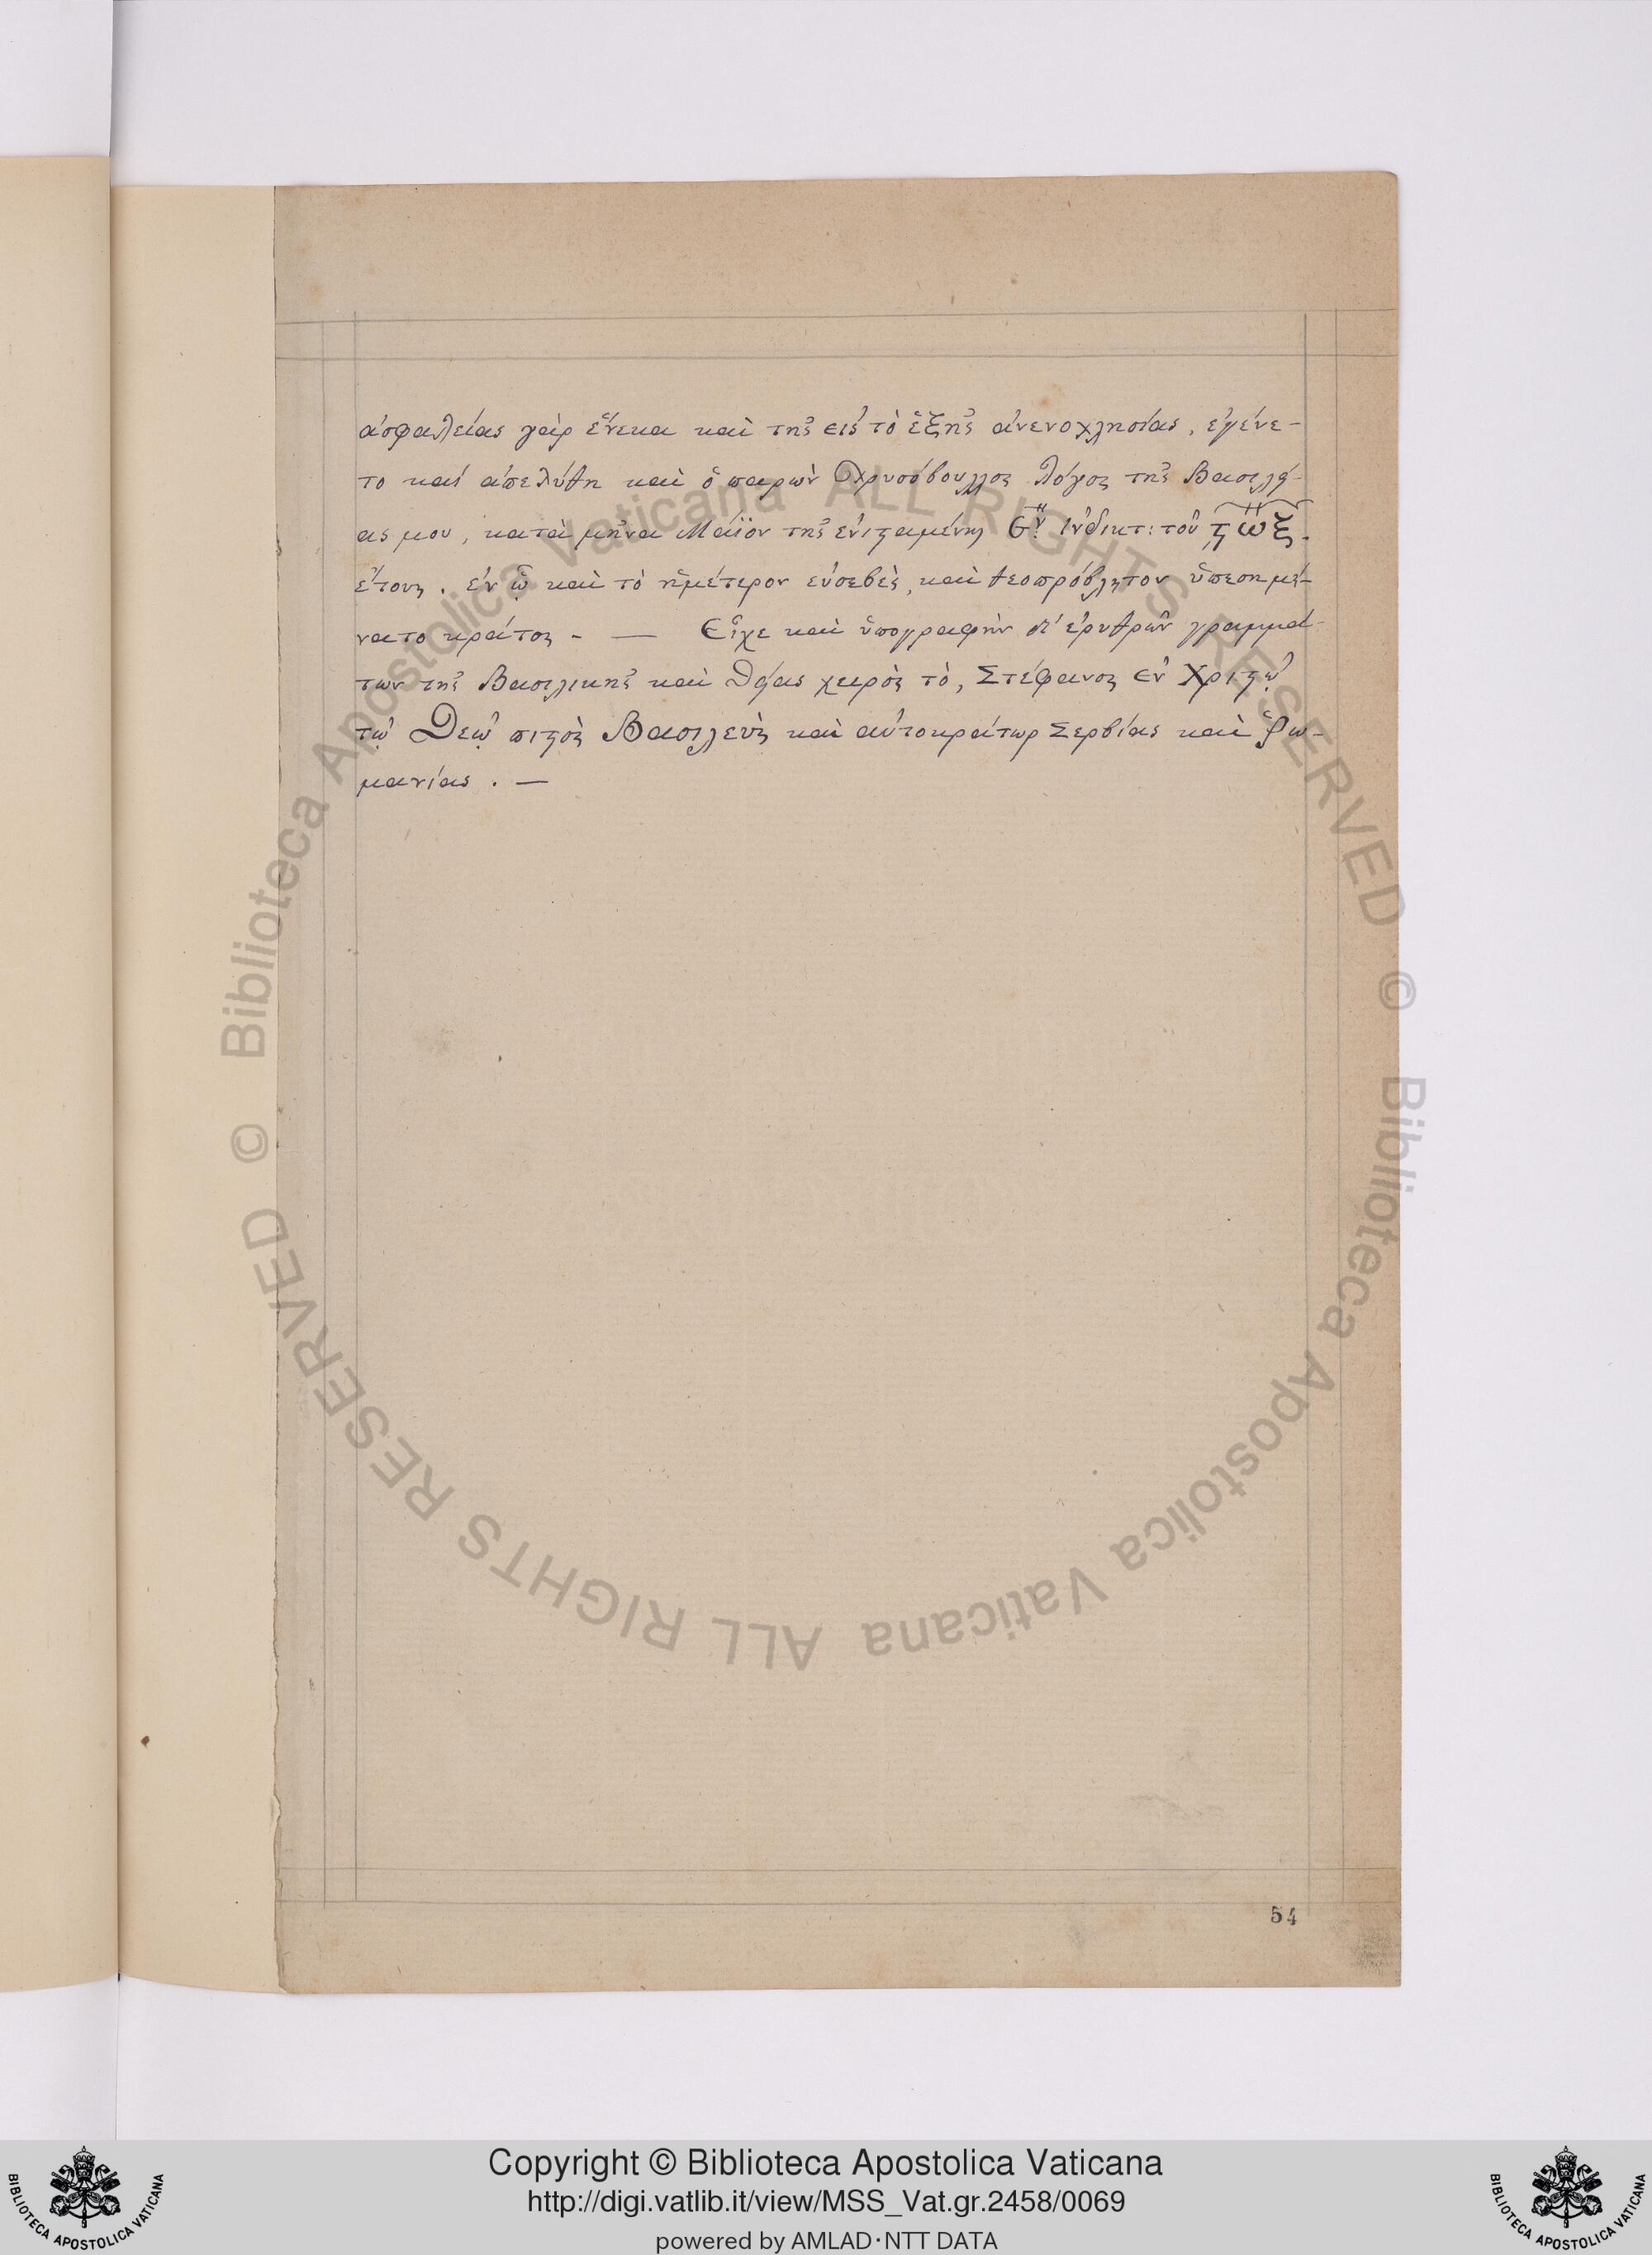 ἀσφαλείας γὰρ ἕνεκα καὶ τῆς εἰς τὸ ἑξῆς ἀνενοχλησίας, ἐγένε-
το καὶ ἀπελύθη καὶ ὁ παρὼν Χρυσόβουλλος Λόγος τῆς Βασιλεί-
ας μου, κατὰ μῆνα Μάϊον τῆς ἐνισταμένης Ἰνδικτ: τοῦ ϛωξ
ἔτους. ἐν ᾧ καὶ τὸ ἡμέτερον εὐσεβὲς, καὶ θεοπρόβλητον ὑπεσημή-
νατο κράτος - — Εἶχε καὶ ὑπογραφὴν δι' ἐρυθρῶν γραμμά-
των τῆς Βασιλικῆς καὶ Θείας χειρὸς τὸ, Στέφανος ἐν Χριστῷ
τῷ Θεῷ πιστὸς Βασιλεὺς καὶ αὐτοκράτωρ Σερβίας καὶ Ῥω-
μανίας . —
54
© Biblioteca Apostolica Vaticana ALL RIGHTS RESERVED
© Biblioteca Apostolica Vaticana ALL RIGHTS RESERVED
Copyright © Biblioteca Apostolica Vaticana
http://digi.vatlib.it/view/MSS_Vat.gr.2458/0069
powered by AMLAD·NTT DATA
BIBLIOTECA APOSTOLICA VATICANA
BIBLIOTECA APOSTOLICA VATICANA